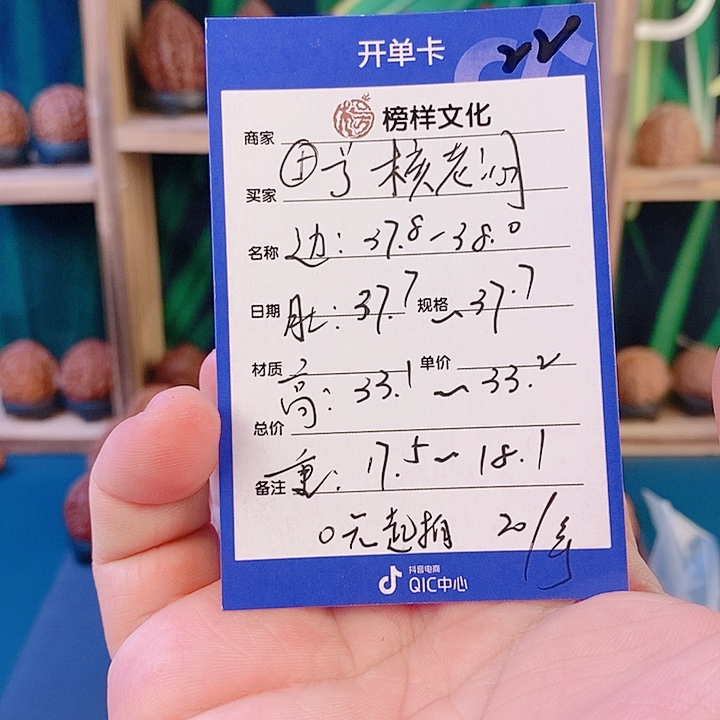 开单卡 22
榜样文化
商家
买家
名称 边：37.8-38.0
日期 肚：37.7 规格 ~37.7
材质 单价
高：33.1~33.2
总价
备注 重：17.5~18.1
0元起拍 20/手
抖音电商
QIC中心